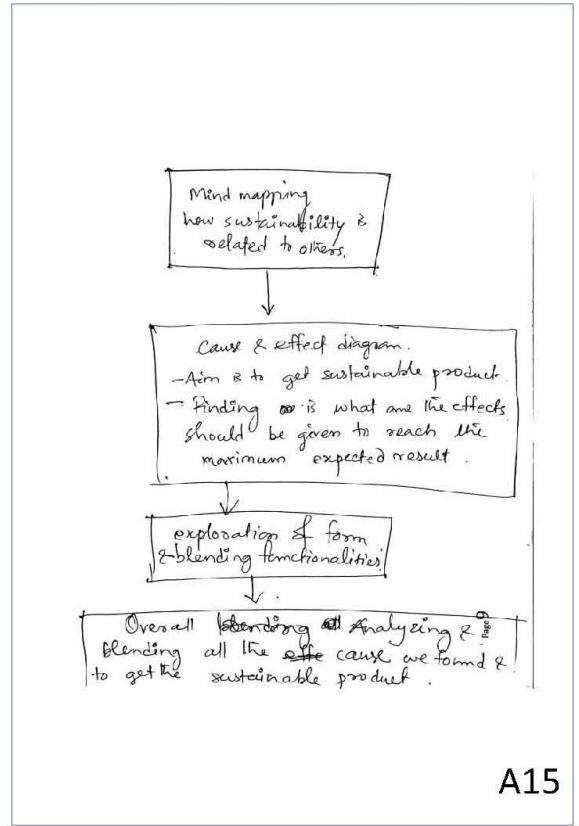 Mind mapping
how sustainability is
related to others.
Cause & effect diagram.
- Aim is to get sustainable product.
- Finding is what are the effects
should be given to reach the
maximum expected result.
exploration of form
& blending functionalities
Overall blending all Analyzing &
blending all the effe cause we found &
to get the sustainable product.
Page 9
A15